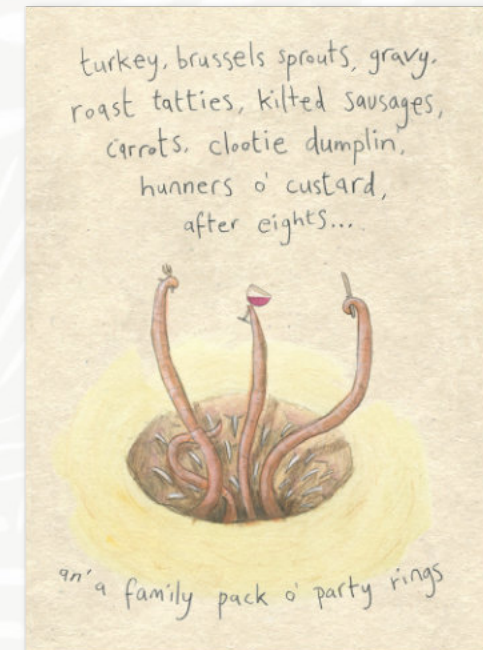 turkey, brussels sprouts, gravy.
roast tatties, kilted sausages,
carrots, clootie dumplin',
hunners o' custard,
after eights...
an' a family pack o' party rings